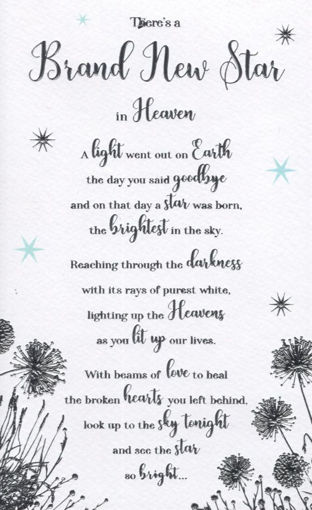 There's a
Brand New Star
in Heaven
A light went out on Earth
the day you said goodbye
and on that day a star was born,
the brightest in the sky.
Reaching through the darkness
with its rays of purest white,
lighting up the Heavens
as you lit up our lives.
With beams of love to heal
the broken hearts you left behind,
look up to the sky tonight
and see the star
so bright...